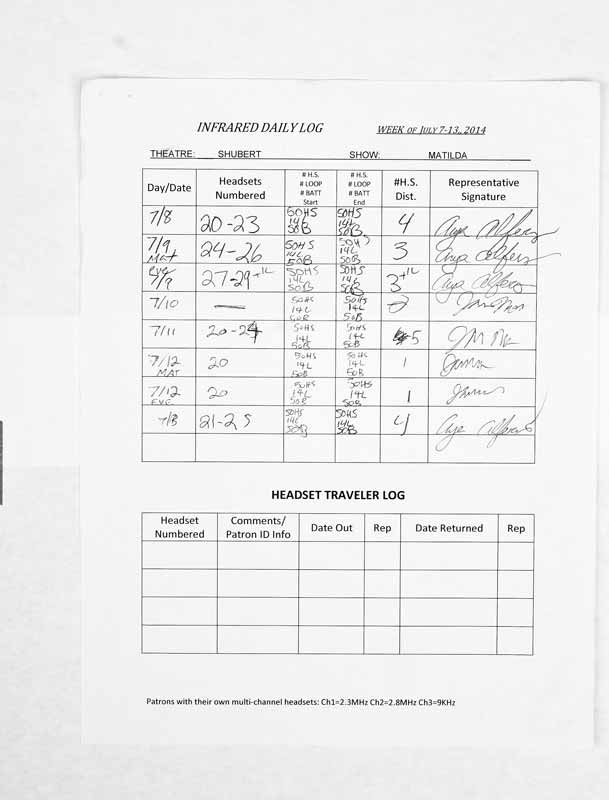 INFRARED DAILY LOG WEEK OF JULY 7-13, 2014
THEATRE: SHUBERT SHOW: MATILDA
Day/Date
Headsets Numbered
# H.S. # LOOP # BATT Start
# H.S. # LOOP # BATT End
#H.S. Dist.
Representative Signature
7/8 20-23 50HS 14L 50B 50HS 14L 50B 4
7/9 MAT 24-26 50HS 14L 50B 50HS 14L 50B 3
EVE 7/9 27-29+1L 50HS 14L 50B 50HS 14L 50B 3+1L
7/10 — 50HS 14L 50B 50HS 14L 50B
7/11 20-24 50HS 14L 50B 50HS 14L 50B 5
7/12 MAT 20 50HS 14L 50B 50HS 14L 50B 1
7/12 EVE 20 50HS 14L 50B 50HS 14L 50B 1
7/13 21-25 50HS 14L 50B 50HS 14L 50B 4
HEADSET TRAVELER LOG
Headset Numbered
Comments/ Patron ID Info
Date Out
Rep
Date Returned
Rep
Patrons with their own multi-channel headsets: Ch1=2.3MHz Ch2=2.8MHz Ch3=9KHz